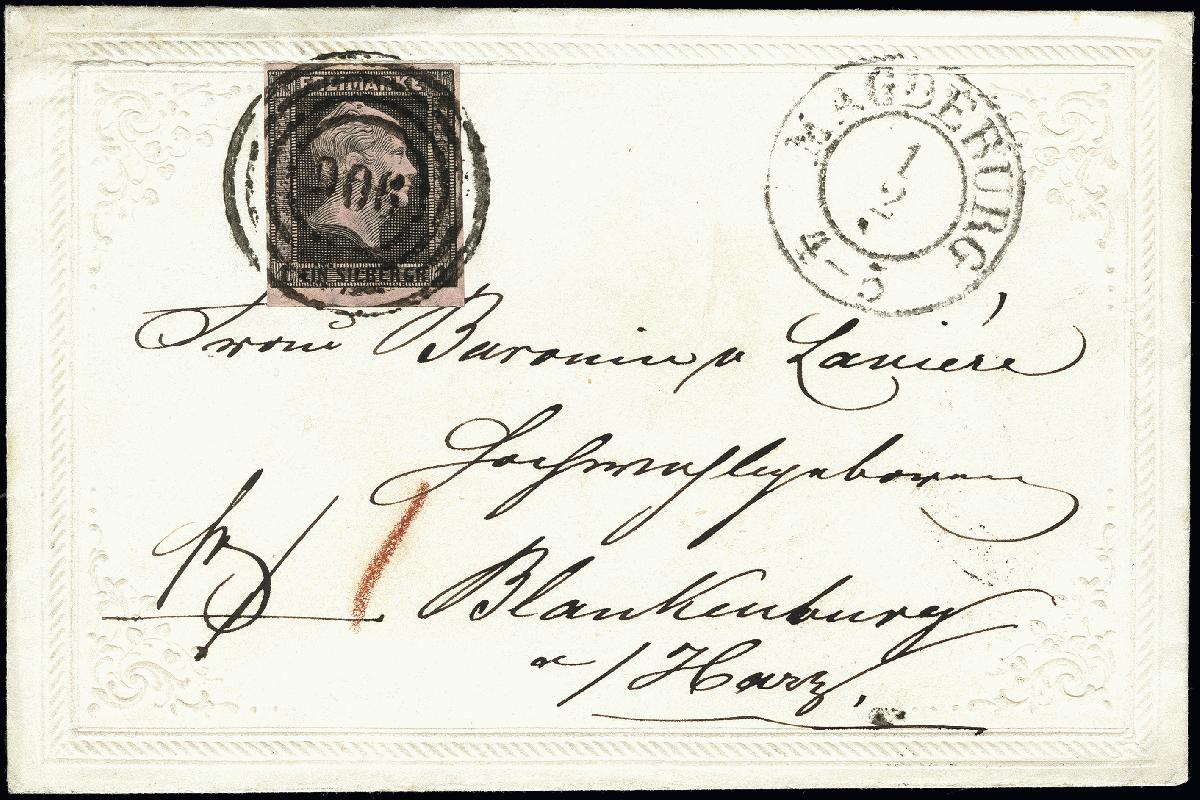 FREIMARKE
EIN SILBERGR
MAGDEBURG
1
2
4-5
Frau Baronin v Lavière
Hochwohlgeboren
fr
1
Blankenburg
a/Harz.